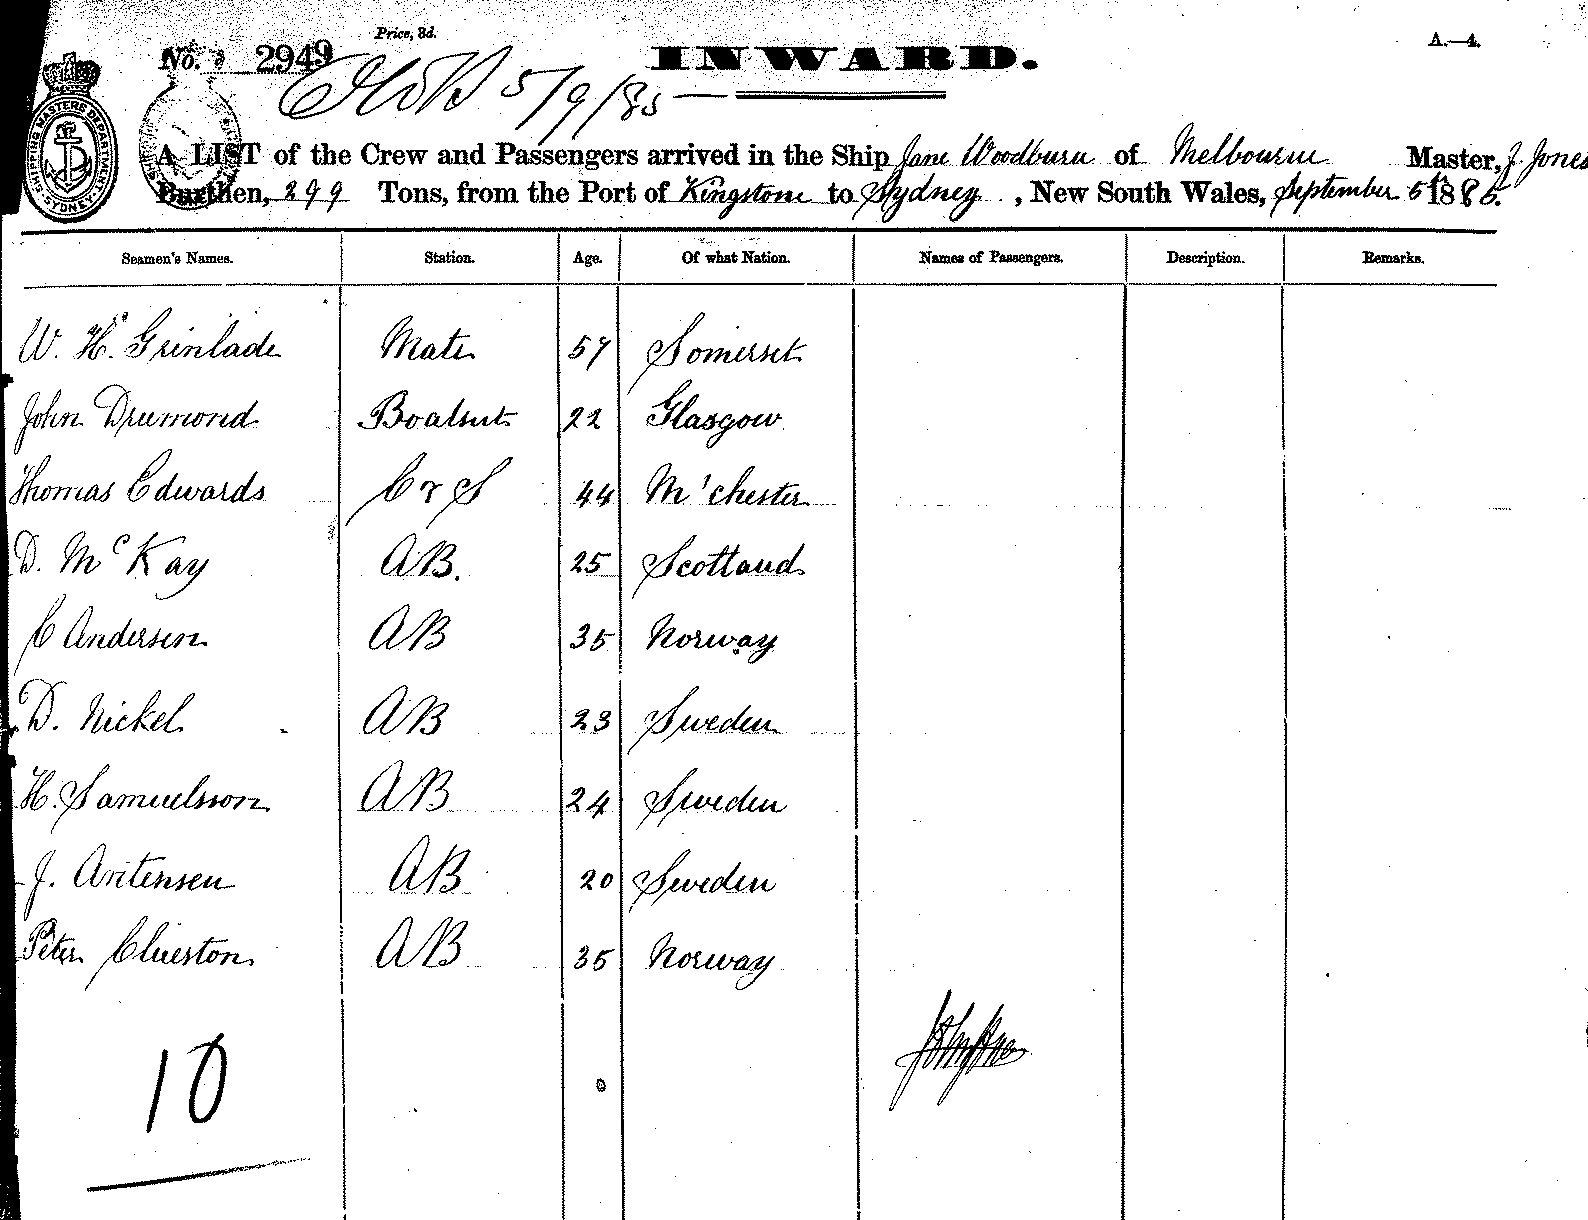 Price, 3d.
A.—4.
No. 2949
INWARD.
5/9/85
SHIPPING MASTERS DEPARTMENT SYDNEY
A LIST of the Crew and Passengers arrived in the Ship Jane Woodburn of Melbourne Master, J. Jones
Burthen, 299 Tons, from the Port of Kingstone to Sydney, New South Wales, September 5th 1885.
Seamen's Names. Station. Age. Of what Nation. Names of Passengers. Description. Remarks.
W. H. Grinlade Mate 57 Somerset
John Drumond Boatsn 22 Glasgow
Thomas Edwards C & S 44 M'chester
D. McKay AB. 25 Scotland
C Andersen AB 35 Norway
D. Nickel AB 23 Sweden
H. Samuelsson AB 24 Sweden
J. Aritensen AB 20 Sweden
Peter Cluerston AB 35 Norway
10